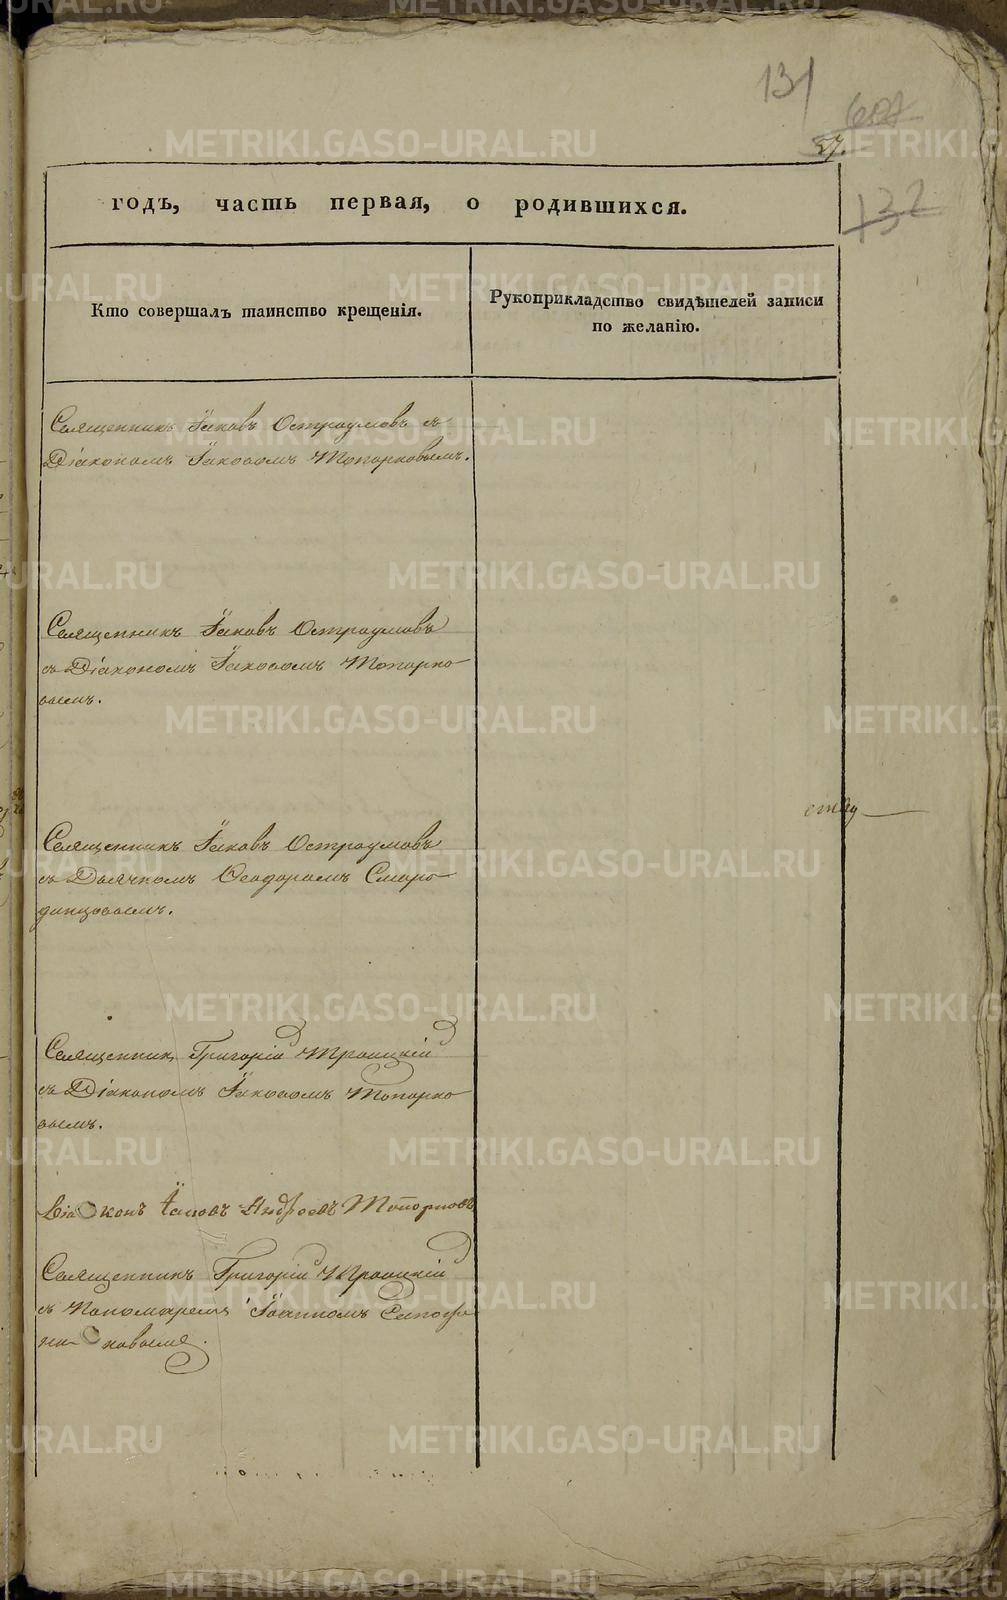 131
27.
132
годъ, часть первая, о родившихся.
Кто совершалъ таинство крещенія.
Рукоприкладство свидѣтелей записи
по желанію.
Священникъ Іаковъ Остроумовъ съ
Діакономъ Іаковомъ Топорковымъ.
Священникъ Іаковъ Остроумовъ
съ Діакономъ Іаковомъ Топорко-
вымъ.
Священникъ Іаковъ Остроумовъ
съ Дьячкомъ Ѳеодоромъ Сморо-
динцовымъ.
Священникъ Григорій Троицкій
съ Діакономъ Іаковомъ Топорко-
вымъ.
Діаконъ Іаковъ Андреевъ Топорковъ
Священникъ Григорій Троицкій
съ Пономаремъ Іоанномъ
METRIKI.GASO-URAL.RU